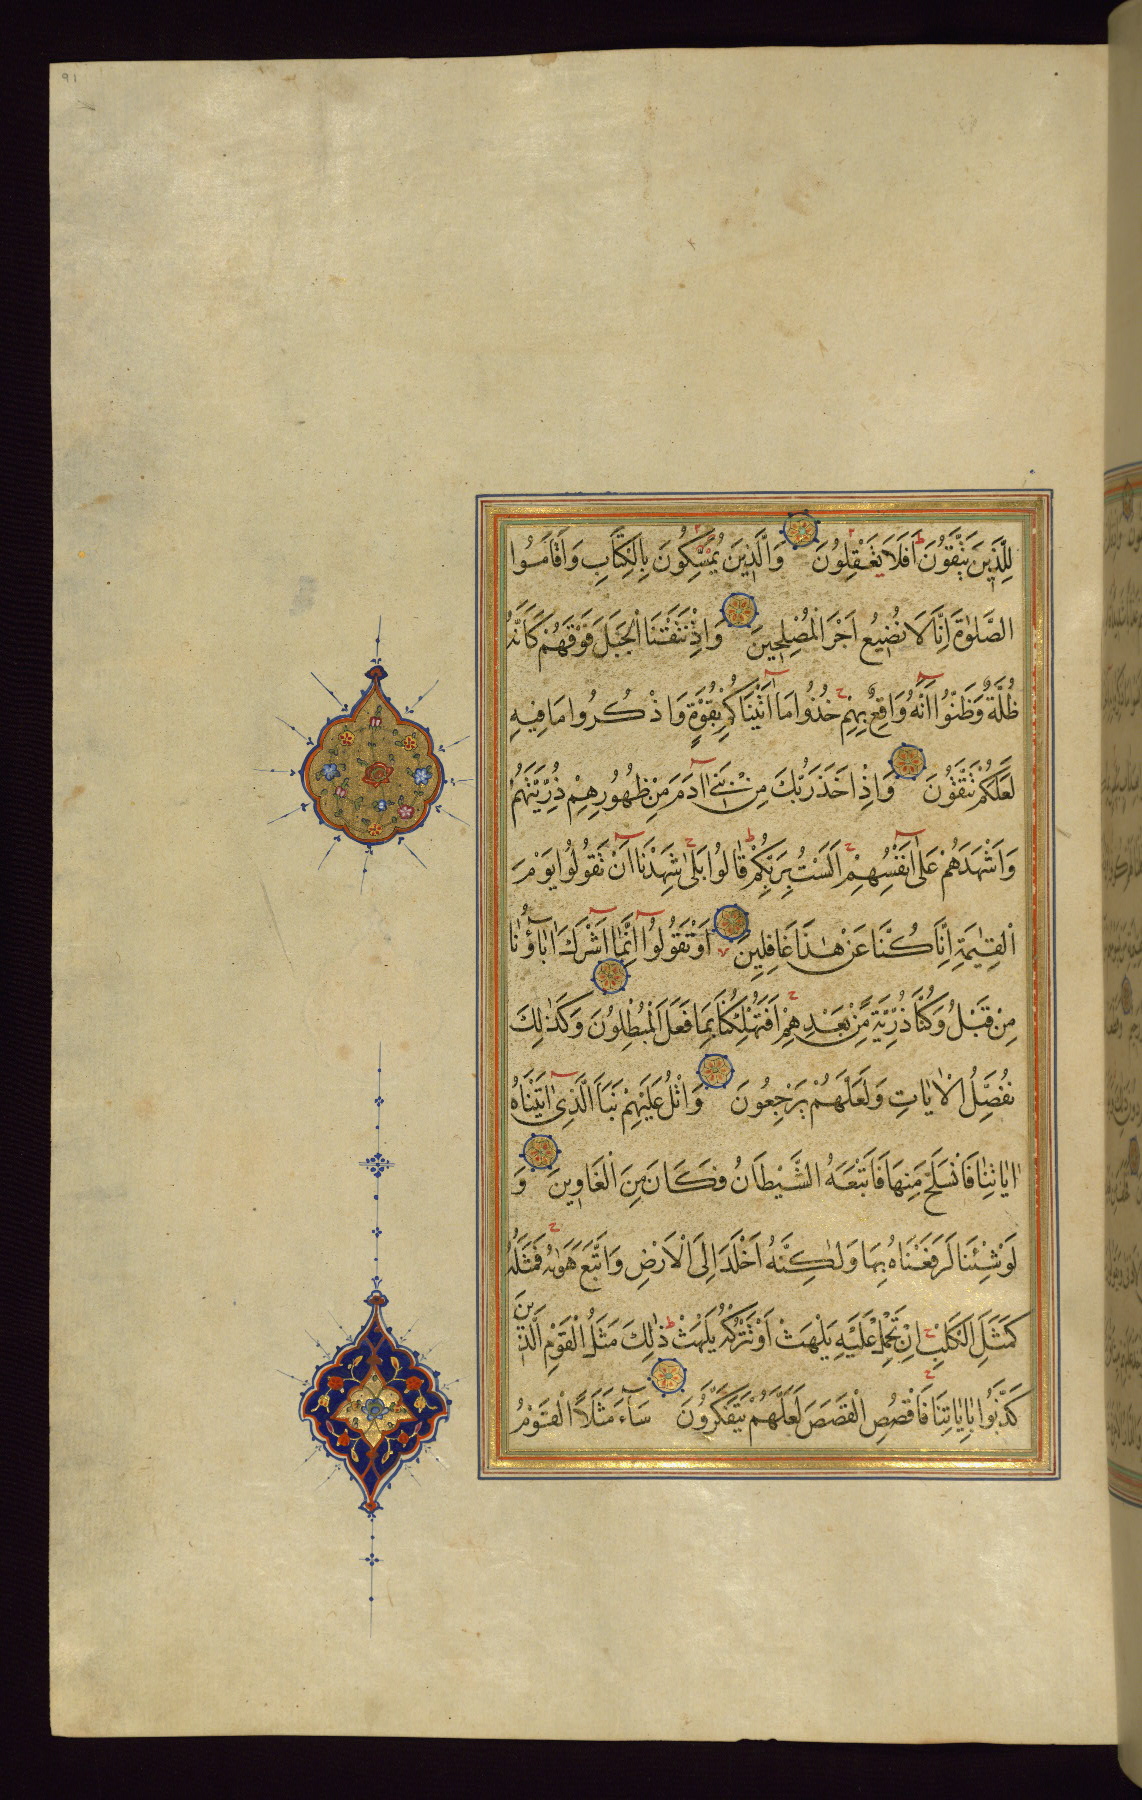 ٩١
لِلَّذِينَ يَتَّقُونَ اَفَلَا يَعْقِلُونَ وَالَّذِينَ يُمَسِّكُونَ بِالْكِتَابِ وَاَقَامُوا
الصَّلٰوةَ اِنَّا لَا نُضِيعُ اَجْرَ الْمُصْلِحِينَ وَاِذْ نَتَقْنَا الْجَبَلَ فَوْقَهُمْ كَاَنَّهُ
ظُلَّةٌ وَظَنُّوا اَنَّهُ وَاقِعٌ بِهِمْ خُذُوا مَا اٰتَيْنَاكُمْ بِقُوَّةٍ وَاذْكُرُوا مَا فِيهِ
لَعَلَّكُمْ تَتَّقُونَ وَاِذْ اَخَذَ رَبُّكَ مِنْ بَنِي اٰدَمَ مِنْ ظُهُورِهِمْ ذُرِّيَّتَهُمْ
وَاَشْهَدَهُمْ عَلٰى اَنْفُسِهِمْ اَلَسْتُ بِرَبِّكُمْ قَالُوا بَلٰى شَهِدْنَا اَنْ تَقُولُوا يَوْمَ
الْقِيٰمَةِ اِنَّا كُنَّا عَنْ هٰذَا غَافِلِينَ اَوْ تَقُولُوا اِنَّمَا اَشْرَكَ اٰبَاؤُنَا
مِنْ قَبْلُ وَكُنَّا ذُرِّيَّةً مِنْ بَعْدِهِمْ اَفَتُهْلِكُنَا بِمَا فَعَلَ الْمُبْطِلُونَ وَكَذٰلِكَ
نُفَصِّلُ الْاٰيَاتِ وَلَعَلَّهُمْ يَرْجِعُونَ وَاتْلُ عَلَيْهِمْ نَبَاَ الَّذِي اٰتَيْنَاهُ
اٰيَاتِنَا فَانْسَلَخَ مِنْهَا فَاَتْبَعَهُ الشَّيْطَانُ فَكَانَ مِنَ الْغَاوِينَ وَ
لَوْ شِئْنَا لَرَفَعْنَاهُ بِهَا وَلٰكِنَّهُ اَخْلَدَ اِلَى الْاَرْضِ وَاتَّبَعَ هَوٰيهُ فَمَثَلُهُ
كَمَثَلِ الْكَلْبِ اِنْ تَحْمِلْ عَلَيْهِ يَلْهَثْ اَوْ تَتْرُكْهُ يَلْهَثْ ذٰلِكَ مَثَلُ الْقَوْمِ الَّذِينَ
كَذَّبُوا بِاٰيَاتِنَا فَاقْصُصِ الْقَصَصَ لَعَلَّهُمْ يَتَفَكَّرُونَ سَاءَ مَثَلًا الْقَوْمُ